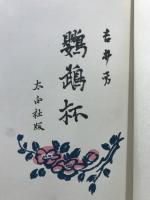 吉井勇
鸚鵡杯
太白社版